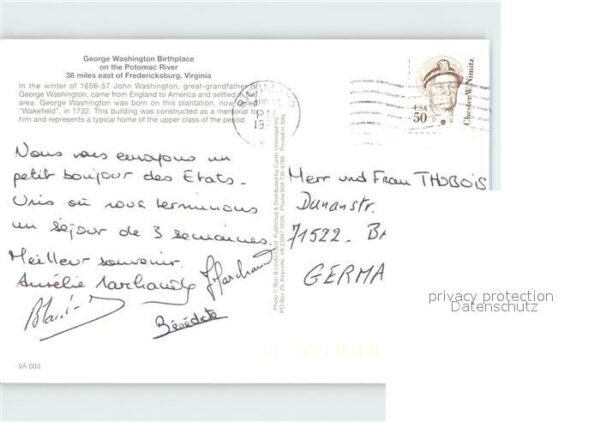 George Washington Birthplace
on the Potomac River
38 miles east of Fredericksburg, Virginia
In the winter of 1656-57 John Washington, great-grandfather of
George Washington, came from England to America and settled in
area. George Washington was born on this plantation, now
"Wakefield", in 1732. This building was constructed as a memorial to
him and represents a typical home of the upper class of the period.
USA
50
Chester W. Nimitz
Nous vous envoyons un
petit bonjour des Etats-
Unis où nous terminons
un séjour de 3 semaines.
Meilleur souvenir.
Aurélie Marchand
Bénédicte
Herr und Frau THOBOIS
Dunanstr.
71522. BA
GERMA
privacy protection
Datenschutz
VA 003